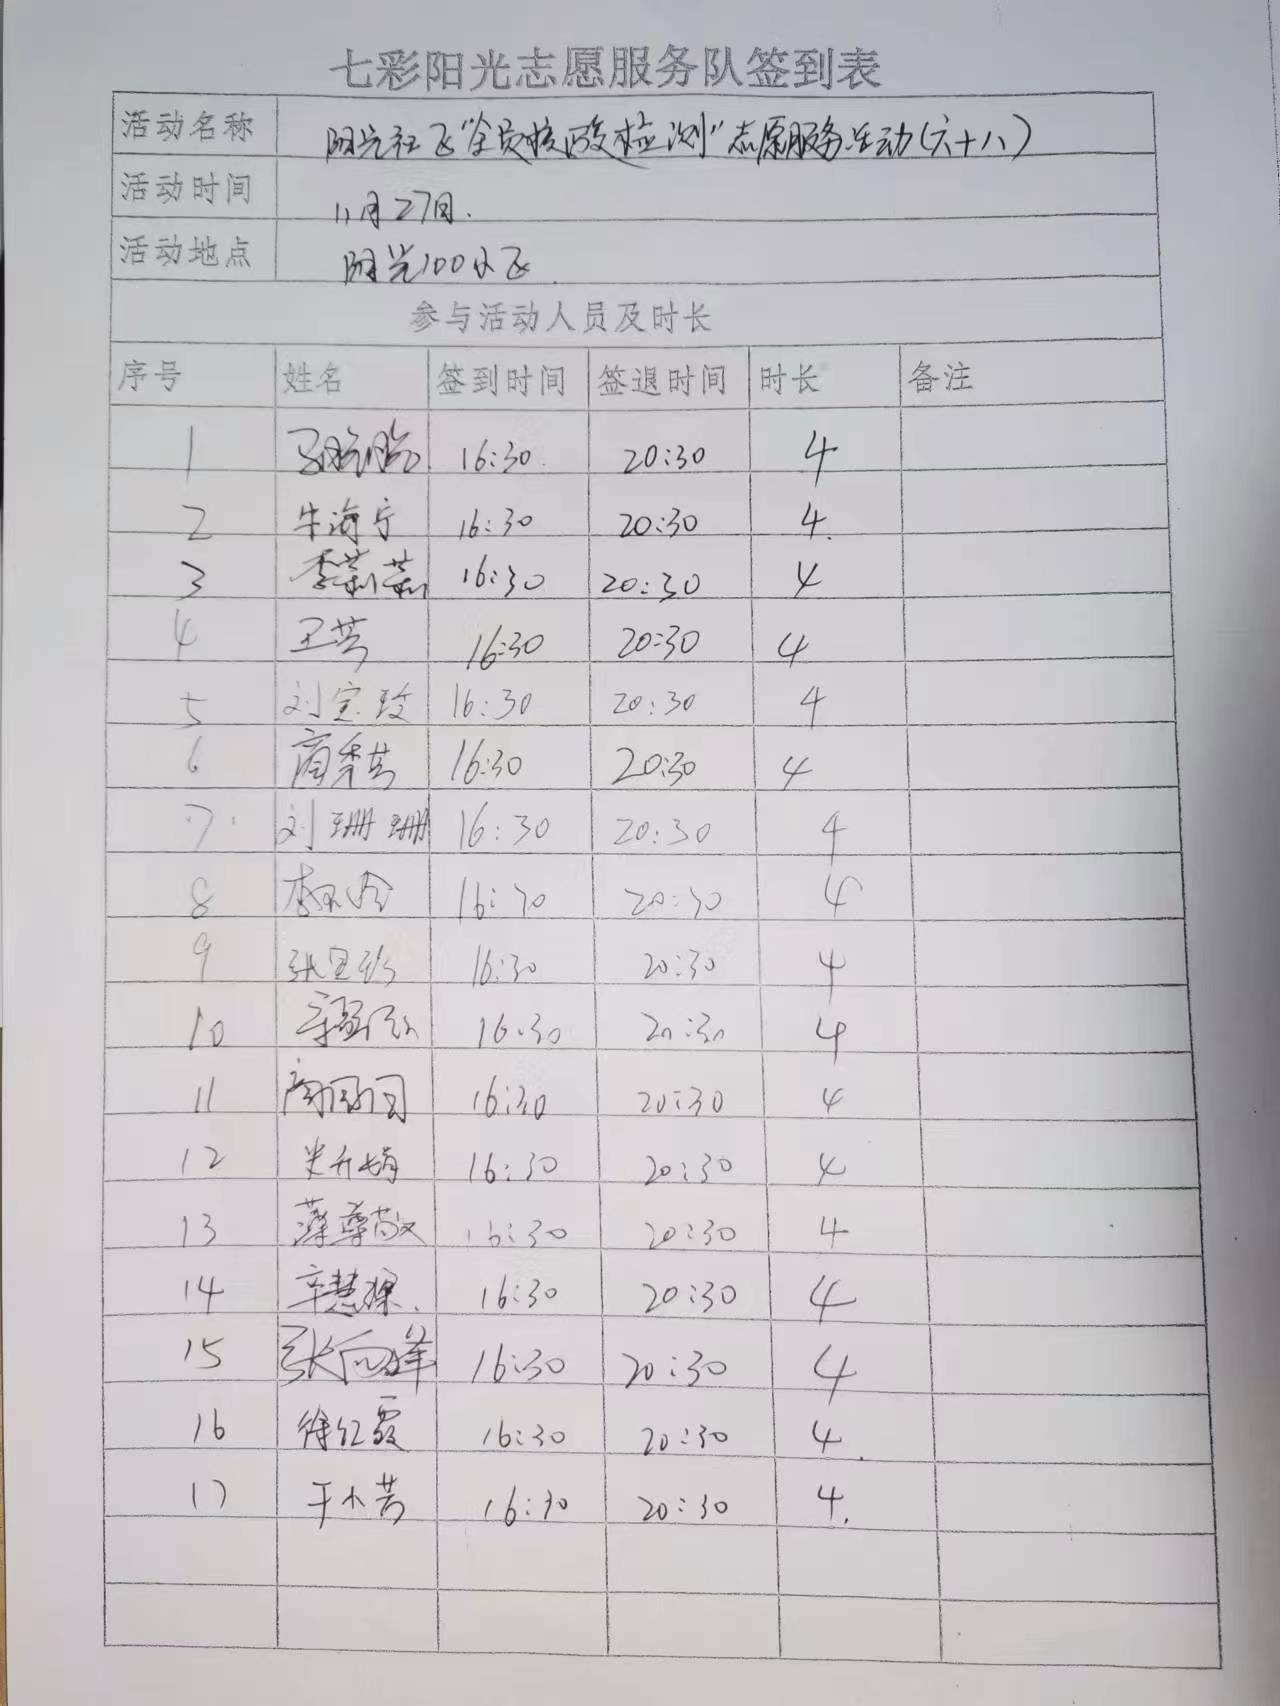 七彩阳光志愿服务队签到表
活动名称 阳光社区“全员核酸检测”志愿服务活动(六十八)
活动时间 11月27日.
活动地点 阳光100小区
参与活动人员及时长
序号 姓名 签到时间 签退时间 时长 备注
1 16:30 20:30 4
2 牛海宁 16:30 20:30 4.
3 李莉莉 16:30 20:30 4
4 王芳 16:30 20:30 4
5 刘宝玫 16:30 20:30 4
6 商秀芸 16:30 20:30 4
7 刘珊珊 16:30 20:30 4
8 16:30 20:30 4
9 16:30 20:30 4
10 16:30 20:30 4
11 16:30 20:30 4
12 16:30 20:30 4
13 薄尊敬 16:30 20:30 4
14 辛慧 16:30 20:30 4
15 张向峰 16:30 20:30 4
16 徐红霞 16:30 20:30 4.
17 于小芳 16:30 20:30 4.